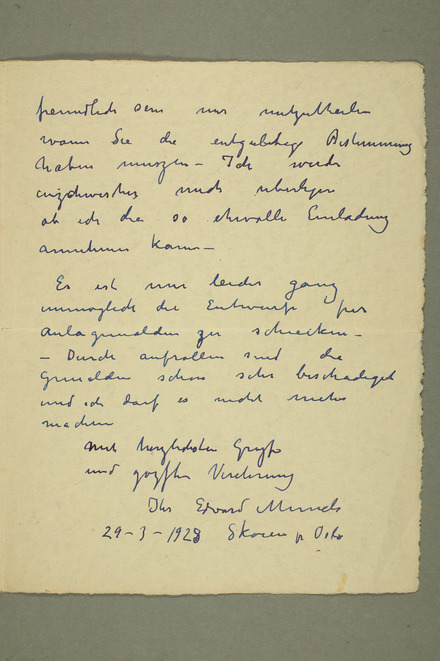 freundlich sein mir mitzutheilen
wann Sie die entgültige Bestimmung
haben muszen – Ich werde
inzchwischen mich uberlegen
ob ich die so ehrvolle Einladung
annehmen kann –
Es ist mir leider ganz
unmoglich die Entwurfe fur
Aulagemälden zu schicken –
– Durch aufrollen sind die
Gemälden schon sehr beschadiget
und ich darf es nicht mehr
machen
mit herzlichsten Grusse
und Verehrung
Ihr Edvard Munch
29-3-1928 Skøien p Oslo